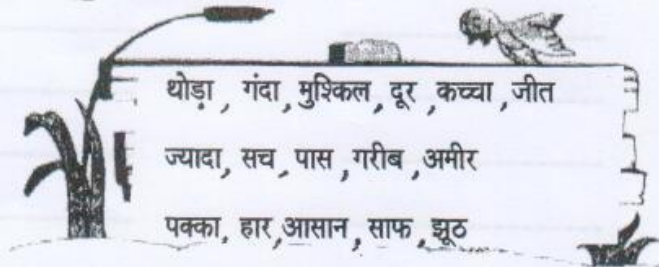 थोड़ा , गंदा , मुश्किल , दूर , कच्चा , जीत
ज्यादा , सच , पास , गरीब , अमीर
पक्का , हार , आसान , साफ , झूठ